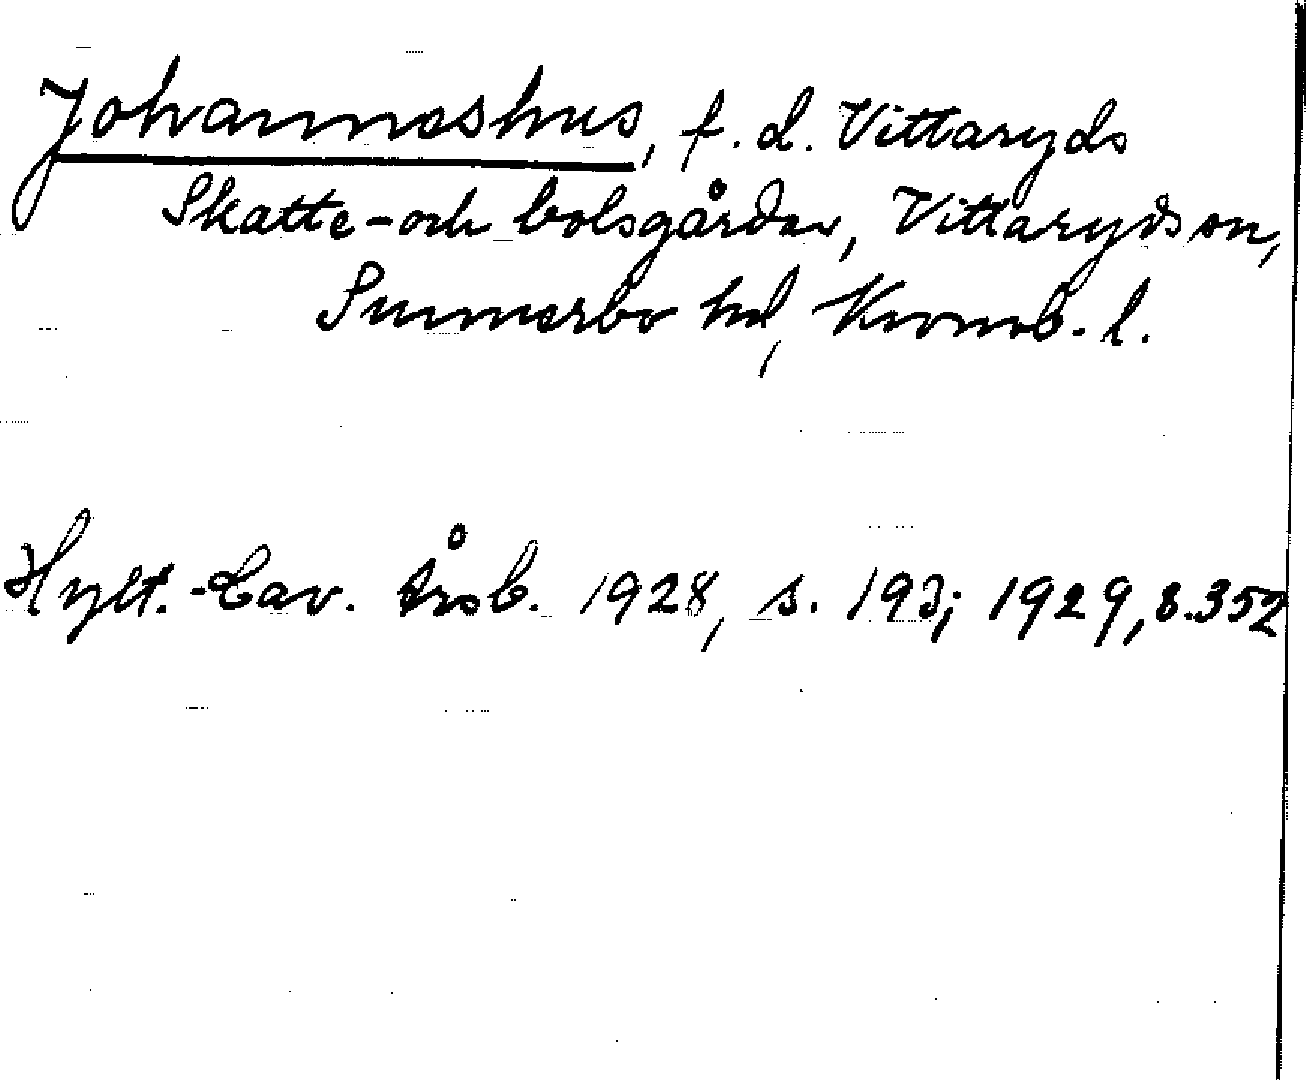 Johanneshus, f. d. Vittaryds
Skatte- och bolsgårdar, Vittaryds sn,
Sunnerbo hd, Kronob. l.
Hylt.-Cav. Årsb. 1928, s. 193; 1929, s. 352